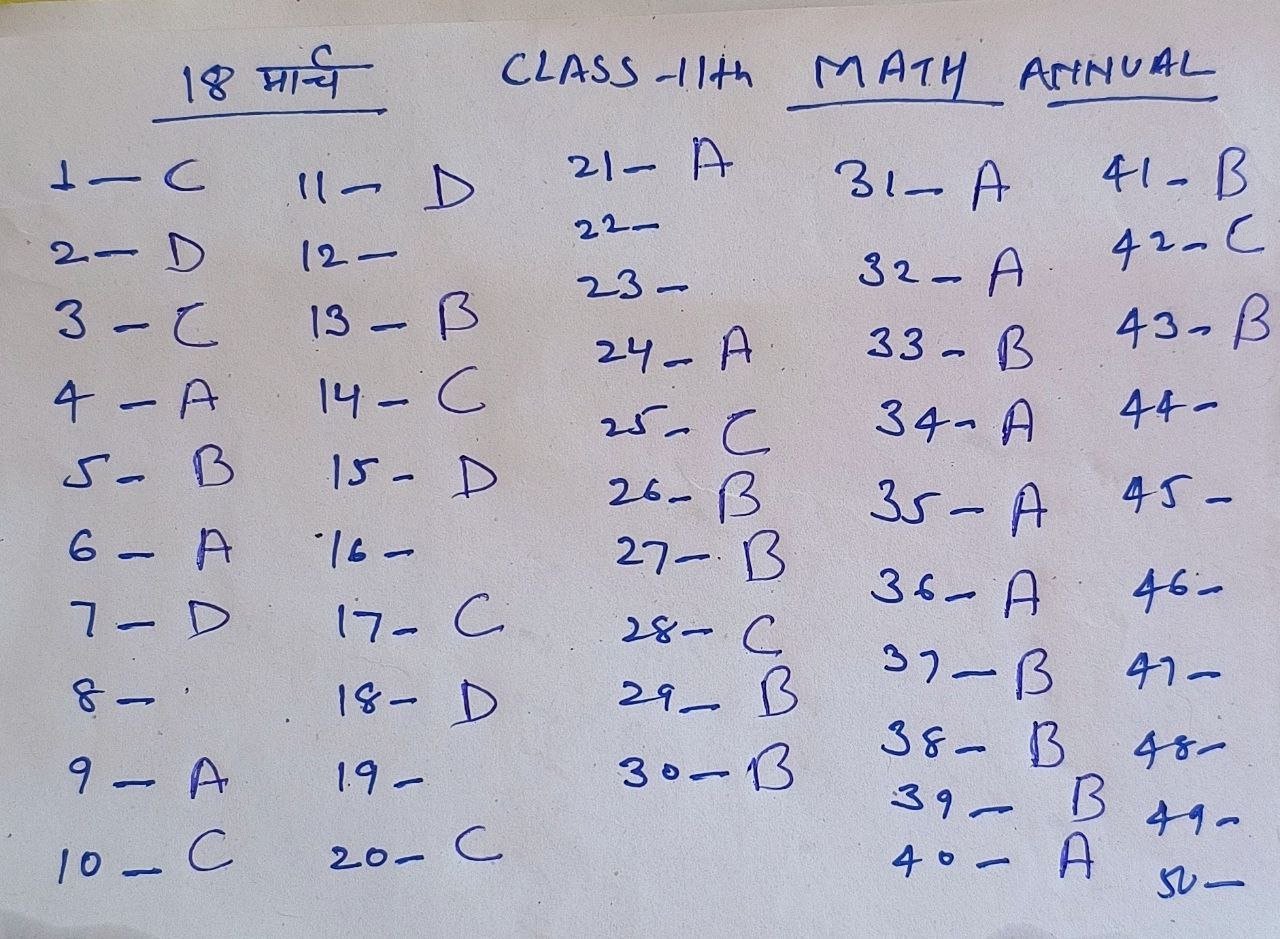 18 मार्च CLASS-11th MATH ANNUAL
1- C
2- D
3- C
4- A
5- B
6- A
7- D
8-
9- A
10- C
11- D
12-
13- B
14- C
15- D
16-
17- C
18- D
19-
20- C
21- A
22-
23-
24- A
25- C
26- B
27- B
28- C
29- B
30- B
31- A
32- A
33- B
34- A
35- A
36- A
37- B
38- B
39- B
40- A
41- B
42- C
43- B
44-
45-
46-
47-
48-
49-
50-